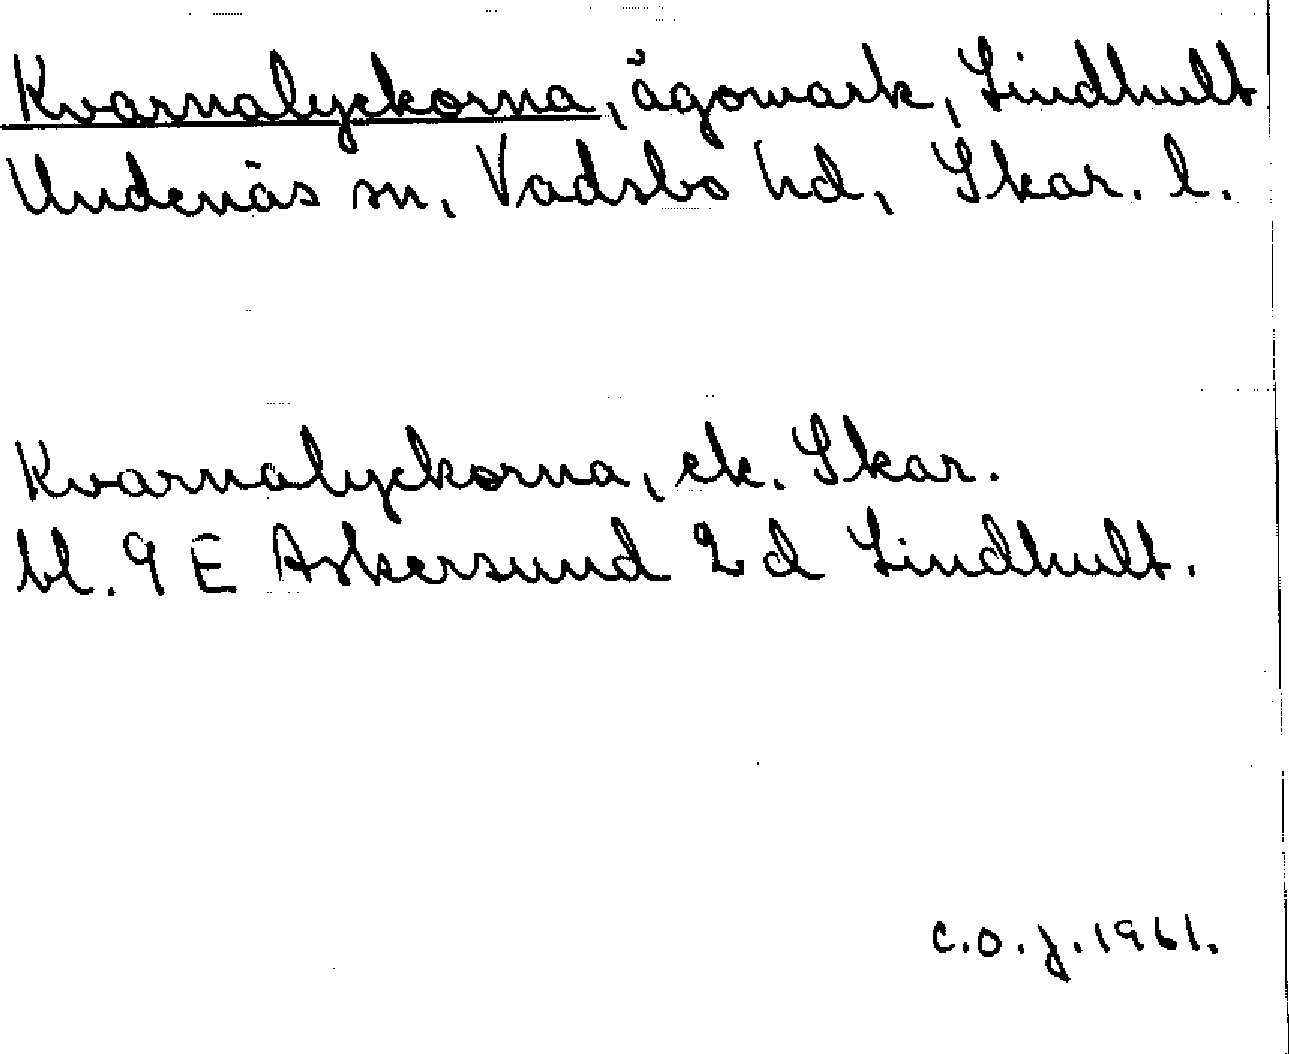 Kvarnalyckorna, ägomark, Lindhult
Undenäs sn, Vadsbo hd, Skar. l.
Kvarnalyckorna, ek. Skar.
bl. 9 E Askersund 2 d Lindhult.
C.O.J. 1961.